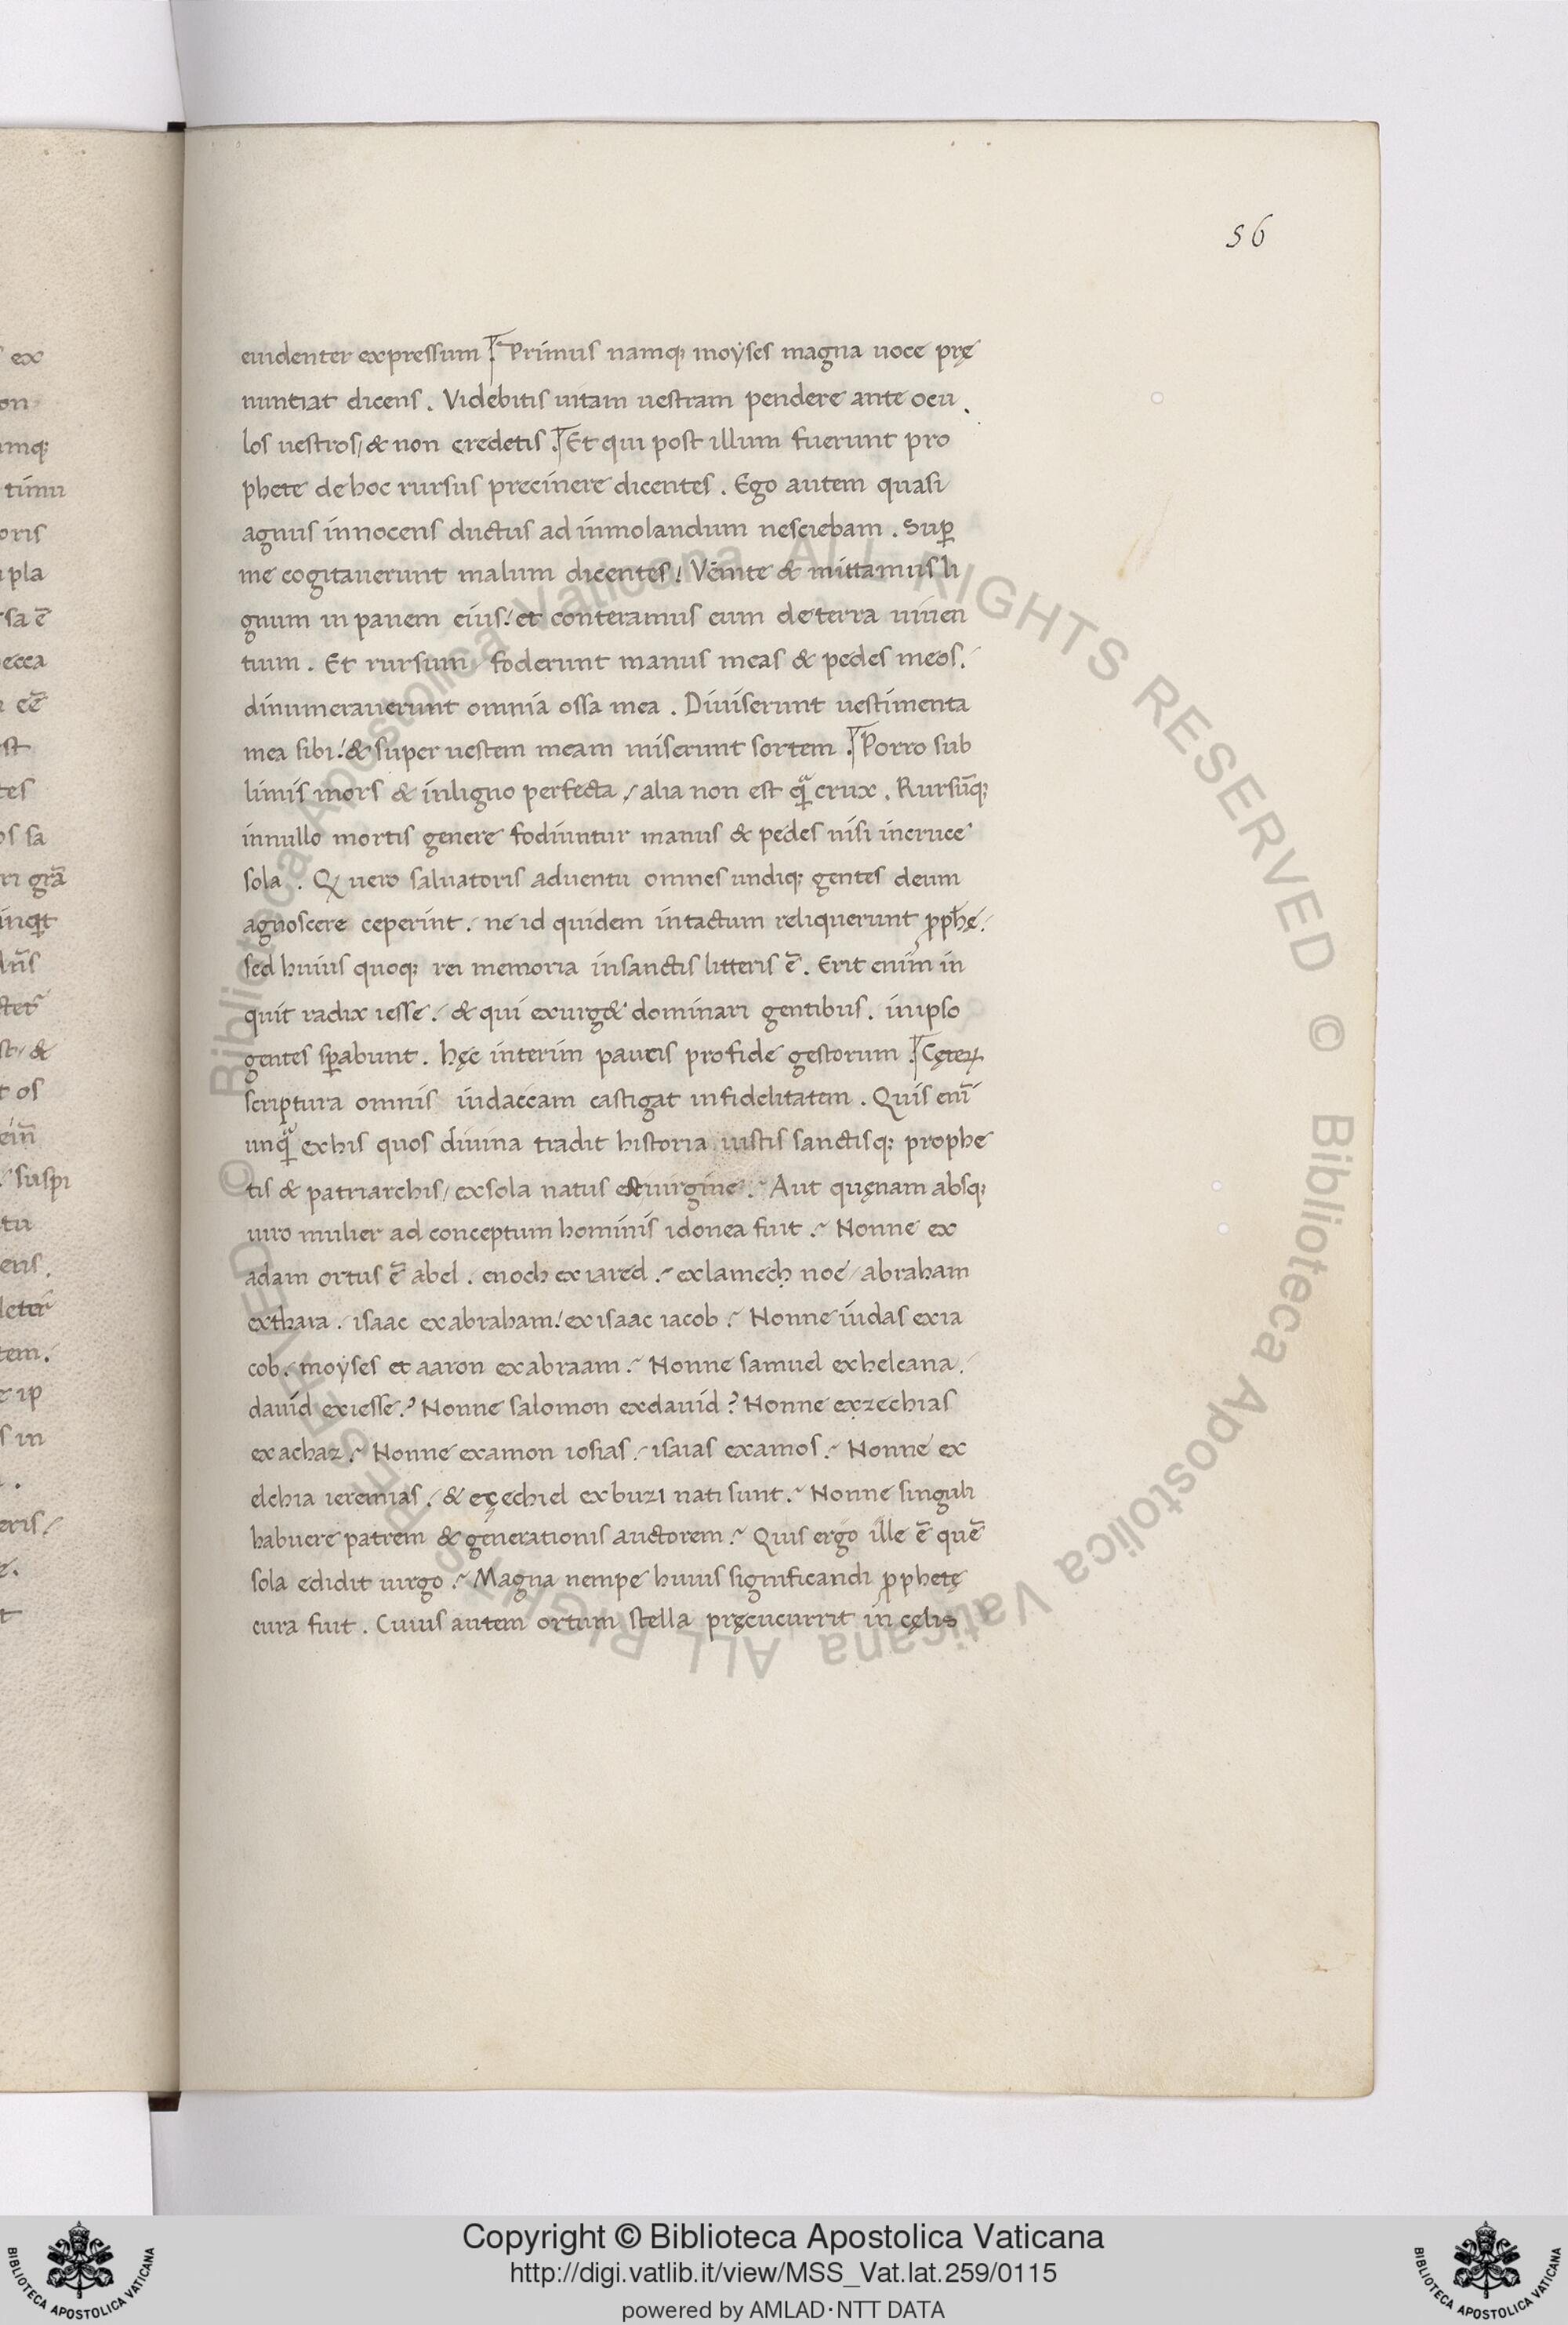 56
euidenter expressum. Primus namq; moyses magna uoce prę
nuntiat dicens. Videbitis uitam uestram pendere ante ocu
los uestros/ & non credetis. Et qui post illum fuerunt pro
phete de hoc rursus precinere dicentes. Ego autem quasi
agnus innocens ductus ad inmolandum nesciebam. Sup̄
me cogitauerunt malum dicentes! Venite & mittamus li
gnum in panem eius! et conteramus eum de terra uiuen
tium. Et rursum foderunt manus meas & pedes meos.
dinumerauerunt omnia ossa mea. Diuiserunt uestimenta
mea sibi! & super uestem meam miserunt sortem. Porro sub
limis mors & inligno perfecta/ alia non est quā crux. Rursūq;
innullo mortis genere fodiuntur manus & pedes nisi incruce
sola. Q uero saluatoris aduentu omnes undiq; gentes deum
agnoscere ceperint. ne id quidem intactum reliquerunt pphę.
sed huius quoq; rei memoria insanctis litteris ē. Erit enim in
quit radix iesse. & qui exurg& dominari gentibus. inipso
gentes sperabunt. hęc interim paucis profide gestorum. Cęterꝝ
scriptura omnis iudaecam castigat infidelitatem. Quis enī
unquā exhis quos diuina tradit historia iustis sanctisq; prophe
tis & patriarchis/ exsola natus est uirgine. Aut quęnam absq;
uiro mulier ad conceptum hominis idonea fuit. Nonne ex
adam ortus ē abel. enoch ex iared. exlamech noe/ abraham
exthara. isaac exabraham! ex isaac iacob. Nonne iudas exia
cob. moyses et aaron exabraam. Nonne samuel exhelcana.
dauid exiesse? Nonne salomon exdauid? Nonne exzechias
exachaz. Nonne examon iosias. isaias examos. Nonne ex
elchia ieremias. & eçechiel exbuzi nati sunt. Nonne singuli
habuere patrem & generationis auctorem. Quis ergo ille ē quē
sola edidit uirgo. Magna nempe huius significandi pphetę
cura fuit. Cuius autem ortum stella pręcucurrit in cęlis
© Biblioteca Apostolica Vaticana ALL RIGHTS RESERVED
Copyright © Biblioteca Apostolica Vaticana
http://digi.vatlib.it/view/MSS_Vat.lat.259/0115
powered by AMLAD·NTT DATA
BIBLIOTECA APOSTOLICA VATICANA
BIBLIOTECA APOSTOLICA VATICANA